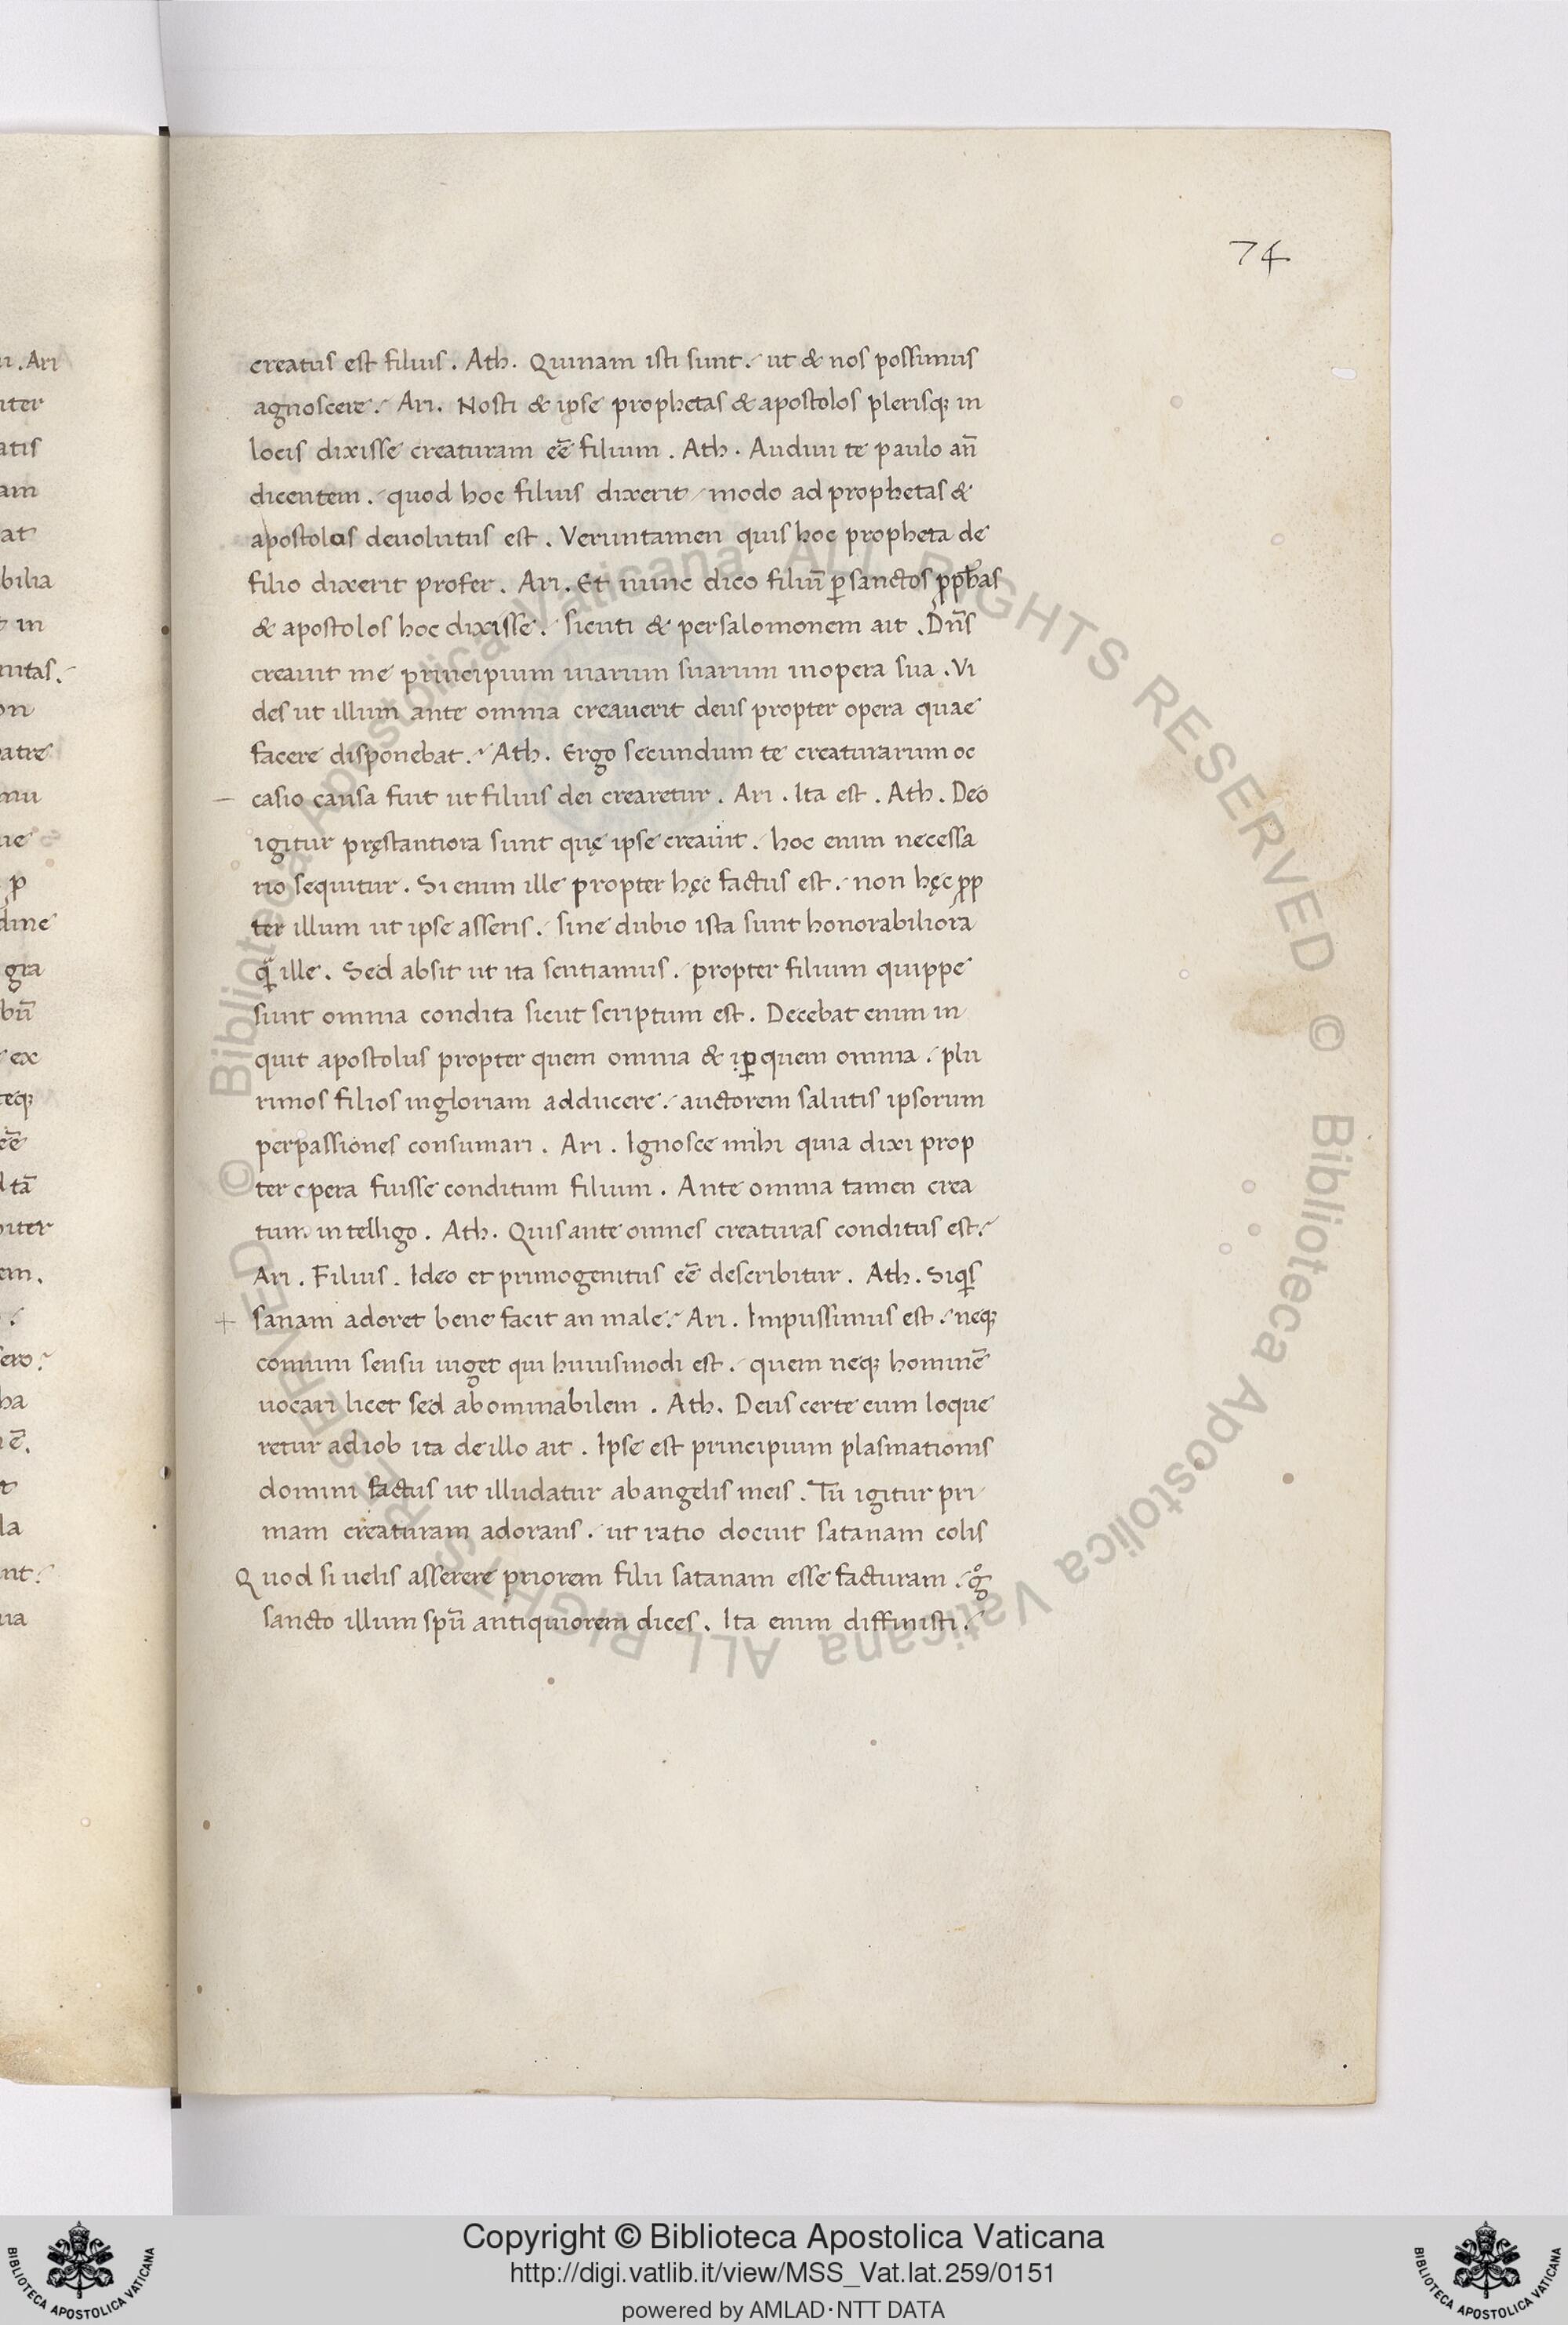 74
creatus est filius . Ath . Quinam isti sunt ./ ut & nos possimus
agnoscere ./ Ari . Nosti & ipse prophetas & apostolos plerisq; in
locis dixisse creaturam eē filium . Ath . Audiui te paulo añ
dicentem ./ quod hoc filius dixerit / modo ad prophetas &
apostolos deuolutus est . Veruntamen quis hoc propheta de
filio dixerit profer . Ari . Et nunc dico filiū ꝑ sanctos ꝓphas
& apostolos hoc dixisse ./ sicuti & per salomonem ait . Dñs
creauit me principium uiarum suarum in opera sua . Vi
des ut illum ante omnia creauerit deus propter opera quae
facere disponebat ./ Ath . Ergo secundum te creaturarum oc
casio causa fuit ut filius dei crearetur . Ari . Ita est . Ath . Deo
igitur pręstantiora sunt quę ipse creauit ./ hoc enim necessa
rio sequitur . Si enim ille propter hęc factus est ./ non hęc ꝓp
ter illum ut ipse asseris ./ sine dubio ista sunt honorabiliora
q̃ ille . Sed absit ut ita sentiamus ./ propter filium quippe
sunt omnia condita sicut scriptum est . Decebat enim in
quit apostolus propter quem omnia & ꝑ quem omnia ./ plu
rimos filios in gloriam adducere ./ auctorem salutis ipsorum
per passiones consumari . Ari . Ignosce mihi quia dixi prop
ter opera fuisse conditum filium . Ante omnia tamen crea
tum intelligo . Ath . Quis ante omnes creaturas conditus est ./
Ari . Filius . Ideo et primogenitus eē describitur . Ath . Siqs
sanam adoret bene facit an male ./ Ari . Impiissimus est ./ neq;
comuni sensu uiget qui huiusmodi est ./ quem neq; hominē
uocari licet sed abominabilem . Ath . Deus certe cum loque
retur ad iob ita de illo ait . Ipse est principium plasmationis
domini factus ut illudatur ab angelis meis . Tu igitur pri
mam creaturam adorans ./ ut ratio docuit satanam colis
Quod si uelis asserere priorem filii satanam esse facturam ./ gͦ
sancto illum spū antiquiorem dices . Ita enim diffinisti ./
© Biblioteca Apostolica Vaticana ALL RIGHTS RESERVED © Biblioteca Apostolica Vaticana ALL RIGHTS RESERVED
Copyright © Biblioteca Apostolica Vaticana
http://digi.vatlib.it/view/MSS_Vat.lat.259/0151
powered by AMLAD·NTT DATA
BIBLIOTECA APOSTOLICA VATICANA
BIBLIOTECA APOSTOLICA VATICANA